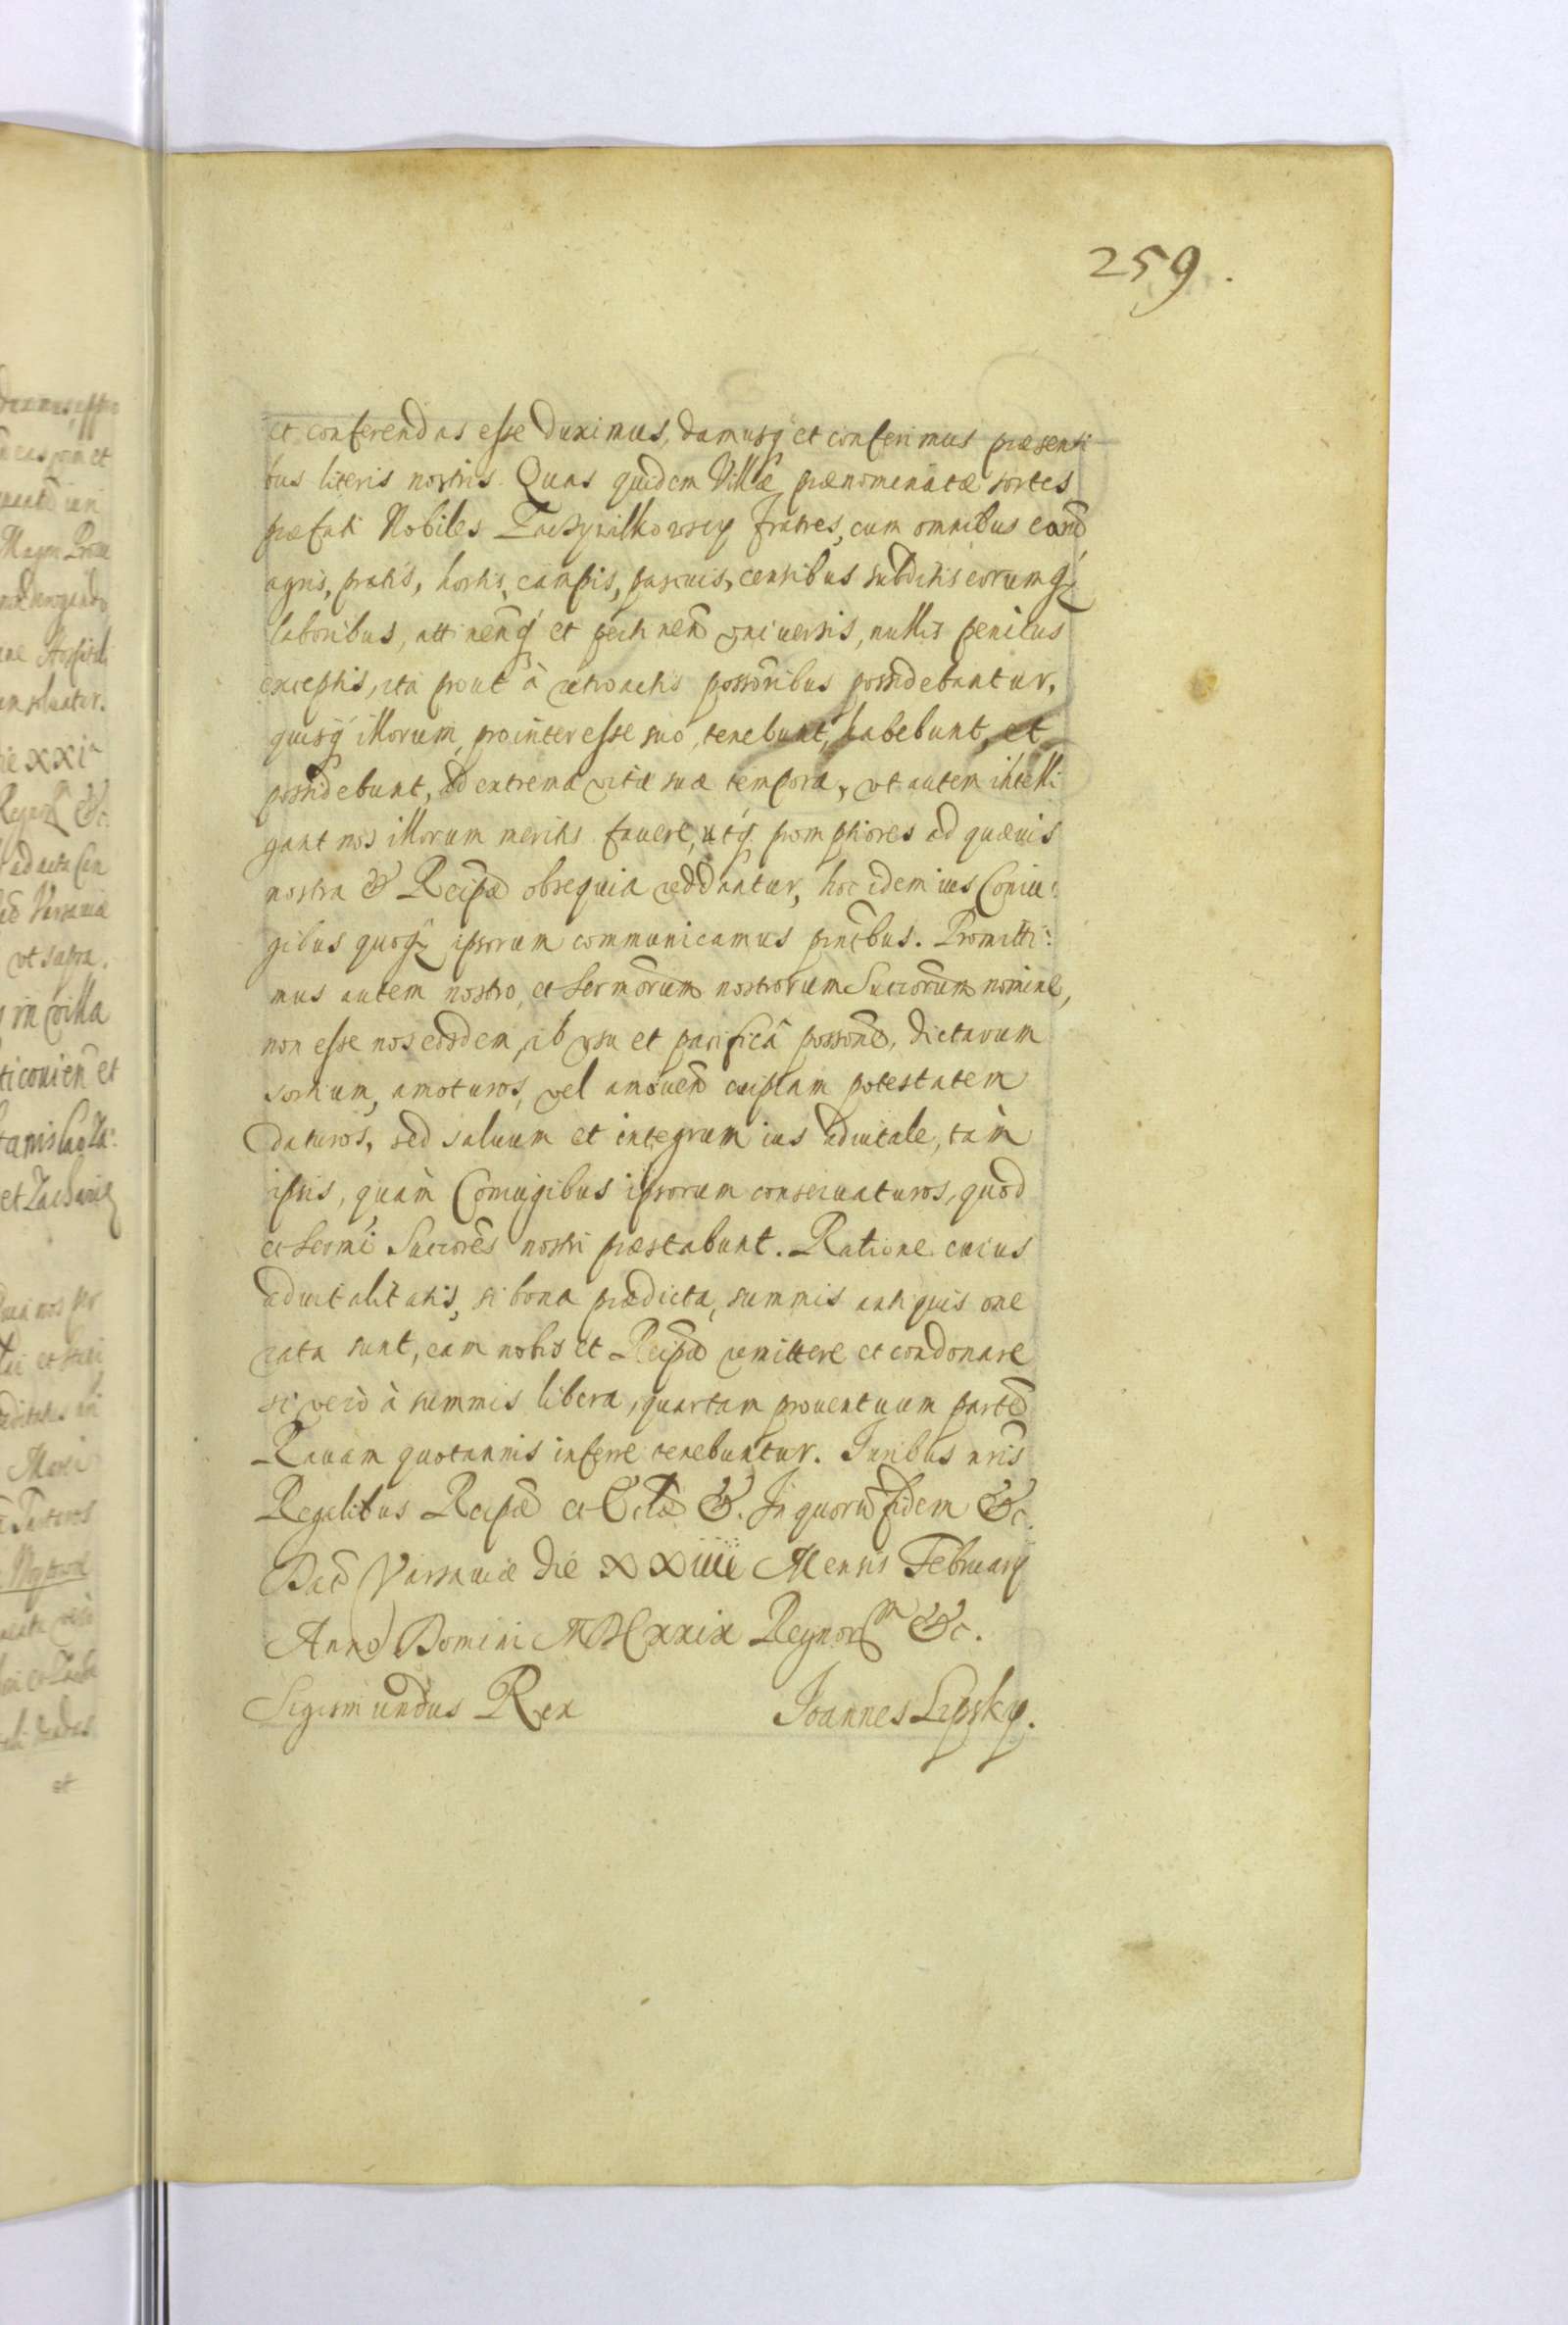 259.
et conferendas esse duximus, damusq́ et conferimus præsenti
bus literis nostris. Quas quidem Villæ prænominatæ sortes
præfati Nobiles fratres, cum omnibus earūd
agris, pratis, hortis, campis, pascuis, censibus subditis eorumq́
laboribus, attineñ q́ et pertineñ vniuersis, nullis penitus
exceptis, ita prout à retroactis possoribus possidebantur,
quisq́ illorum, pro interesse suo, tenebunt, habebunt, et
possidebunt, ad extrema vitæ suæ tempora, vt autem intelli
gant nos illorum meritis fauere, utq́ promptiores ad quæuis
nostra & Reipũ obsequia reddantur, hoc idem ius Coniu:
gibus quoq́ ipsorum communicamus pñtibus. Promitti:
mus autem nostro, et Sermõrum nostrorum Succorum nomine,
non esse nos eosdem, ab vsu et pacificâ possoñe, dictarum
sortium, amoturos, vel amouen̄ cuipiam potestatem
daturos, sed saluum et integrum ius aduitale, tàm
ipsis, quàm Coniugibus ipsorum conseruaturos, quod
et Sermi Succores nostri præstabunt. Ratione cuius
aduitalitatis, si bona prædicta, summis antiquis one
rata sunt, eam nobis et Reipũ remittere et condonare
si verò à summis libera, quartam prouentuum partẽ
Rauam quotannis inferre tenebuntur. Iuribus nr̃is
Regalibus Reipũ et &. In quorũ fidem &c.
Dat̃ Varsauiæ die XXiiii Mensis February
Anno Domini MDCxxix Regnorm̃ &c.
Sigismundus Rex Joannes Lipsky.